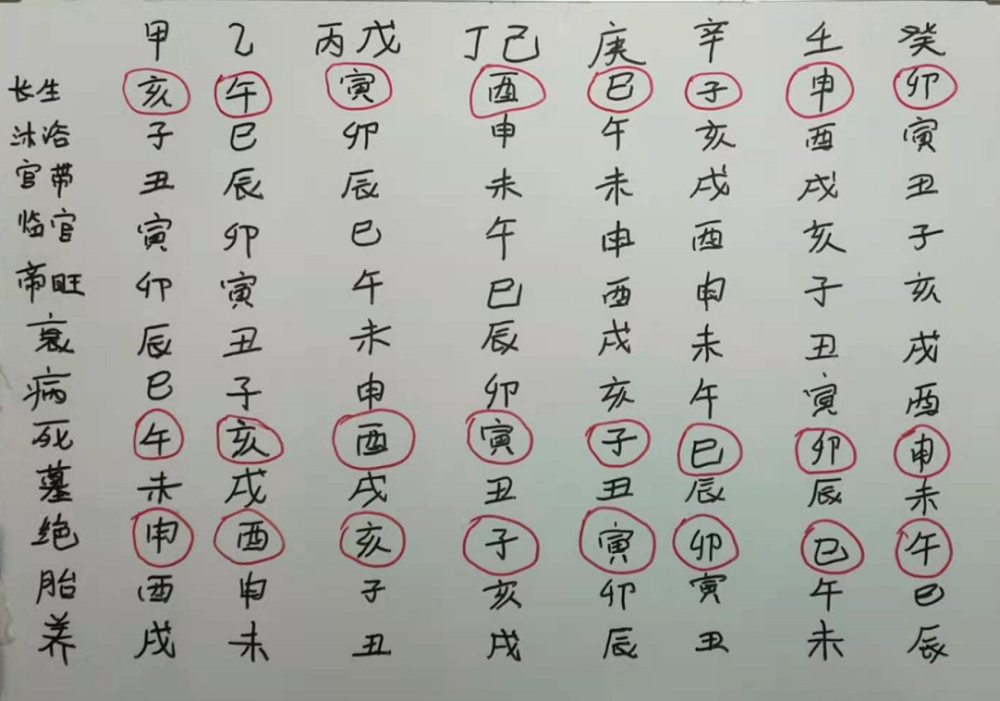 甲 乙 丙戊 丁己 庚 辛 壬 癸
长生 亥 午 寅 酉 巳 子 申 卯
沐浴 子 巳 卯 申 午 亥 酉 寅
官带 丑 辰 辰 未 未 戌 戌 丑
临官 寅 卯 巳 午 申 酉 亥 子
帝旺 卯 寅 午 巳 酉 申 子 亥
衰 辰 丑 未 辰 戌 未 丑 戌
病 巳 子 申 卯 亥 午 寅 酉
死 午 亥 酉 寅 子 巳 卯 申
墓 未 戌 戌 丑 丑 辰 辰 未
绝 申 酉 亥 子 寅 卯 巳 午
胎 酉 申 子 亥 卯 寅 午 巳
养 戌 未 丑 戌 辰 丑 未 辰